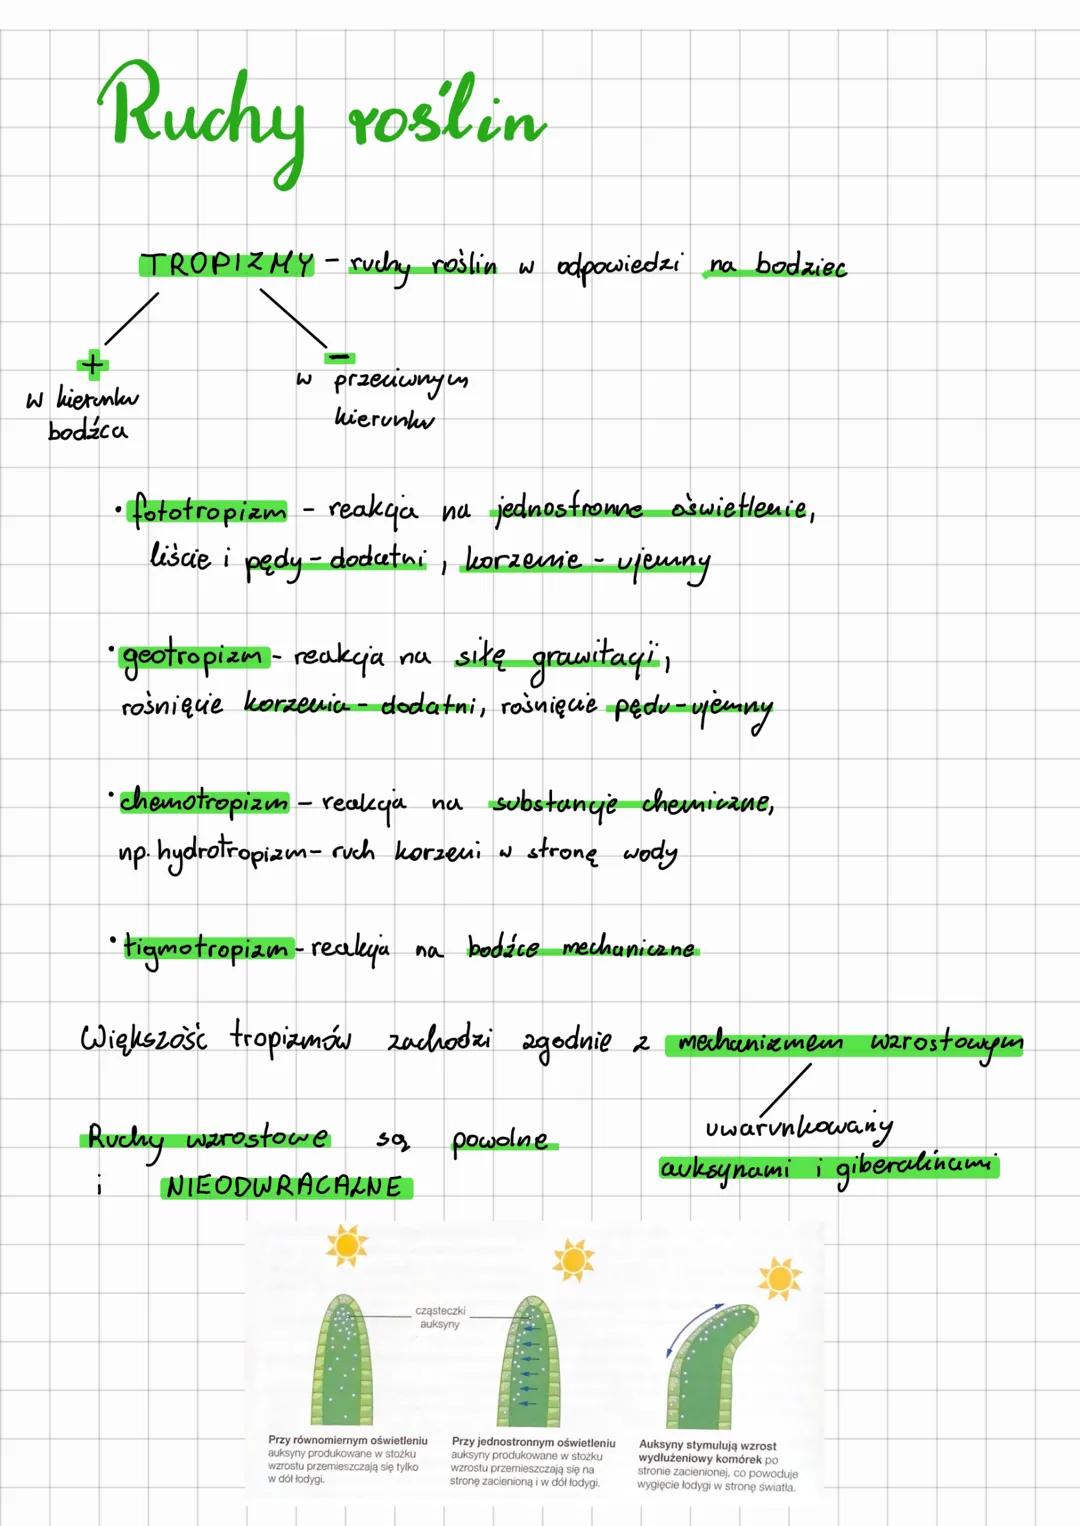 Ruchy roślin
TROPIZMY - ruchy roślin w odpowiedzi na bodziec
+
w kierunku
bodźca
-
w przeciwnym
kierunku
• fototropizm - reakcja na jednostronne oświetlenie,
liście i pędy - dodatni, korzenie - ujemny
• geotropizm - reakcja na siłę grawitacji,
rośnięcie korzenia - dodatni, rośnięcie pędu - ujemny
• chemotropizm - reakcja na substancje chemiczne,
np. hydrotropizm - ruch korzeni w stronę wody
• tigmotropizm - reakcja na bodźce mechaniczne
Większość tropizmów zachodzi zgodnie z mechanizmem wzrostowym
uwarunkowany
auksynami i giberalinami
Ruchy wzrostowe są powolne
i NIEODWRACALNE
cząsteczki
auksyny
Przy równomiernym oświetleniu
auksyny produkowane w stożku
wzrostu przemieszczają się tylko
w dół łodygi.
Przy jednostronnym oświetleniu
auksyny produkowane w stożku
wzrostu przemieszczają się na
stronę zacienioną i w dół łodygi.
Auksyny stymulują wzrost
wydłużeniowy komórek po
stronie zacienionej, co powoduje
wygięcie łodygi w stronę światła.